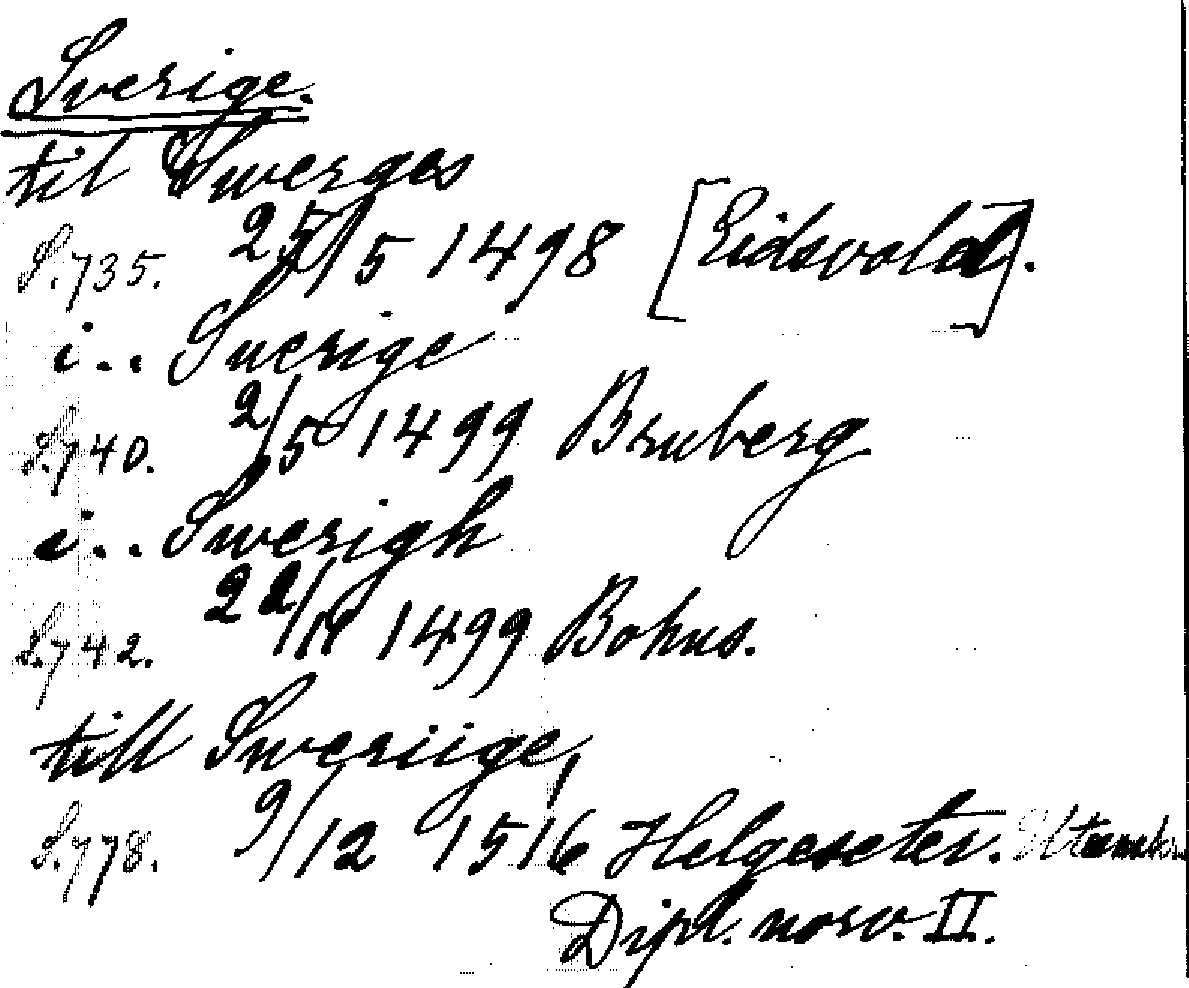 Sverige.
til Swerges
S.735. 25/5 1498 [Eidsvold].
i.. Suerige
S.740. 2/5 1499 Bruberg
i.. Swerigh
S.742. 22/11 1499 Bohus.
till Sweriige,
S.778. 9/12 1516 Helgeseter.
Dipl. norv. II.